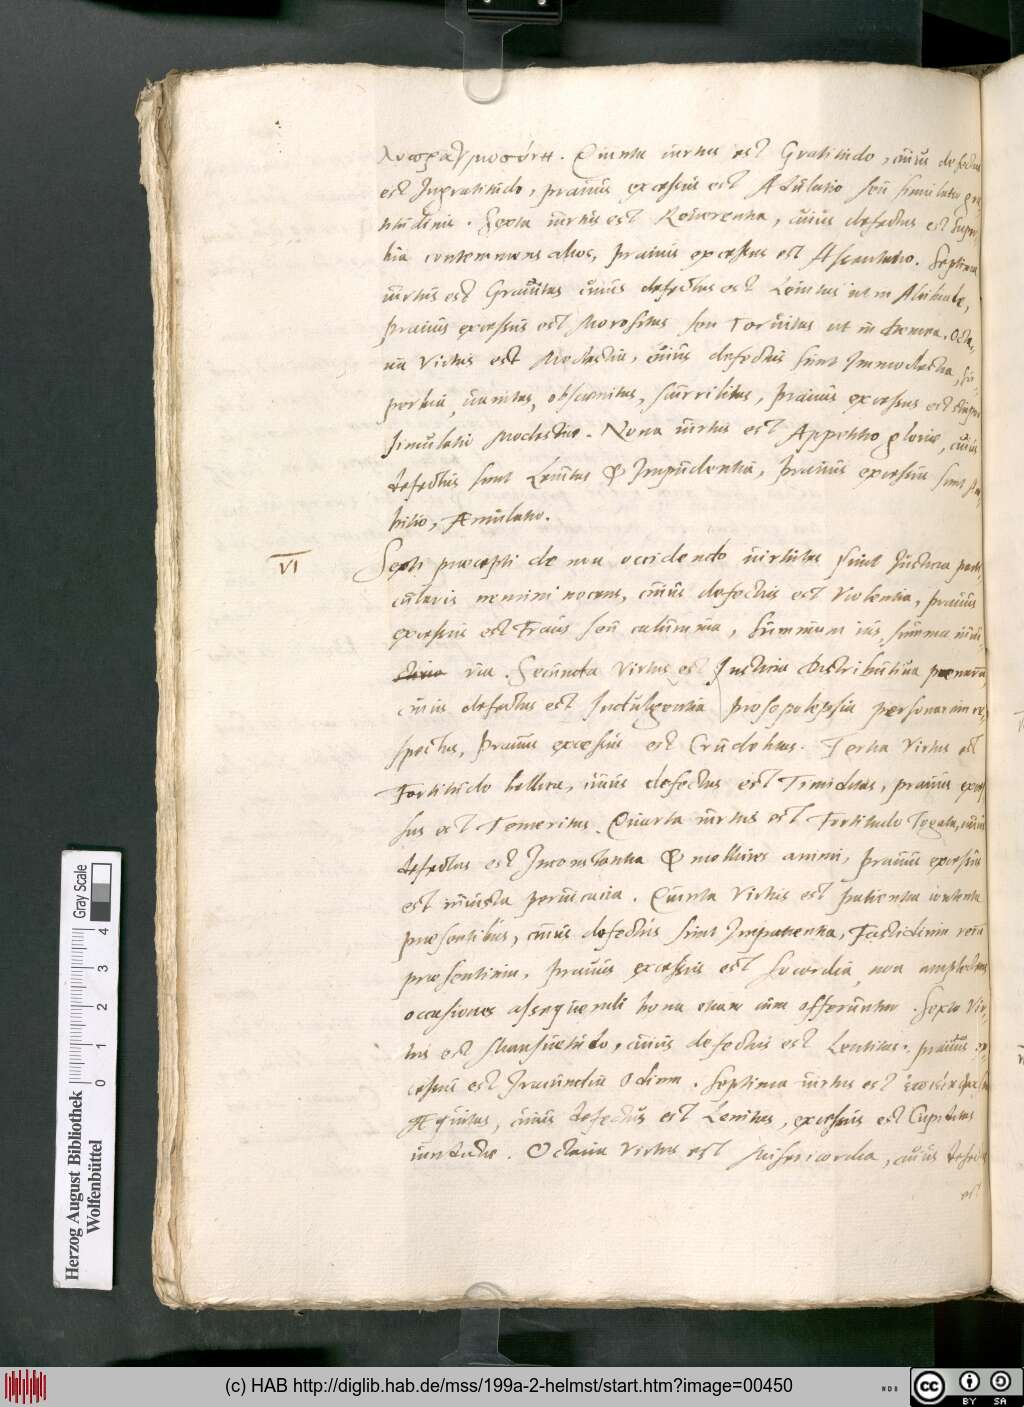 λυπραγμοσύνη. Quinta virtus est Gratitudo, cuius defectus
est Ingratitudo, pravus excessus est Adulatio seu simulatio gra
titudinis. Sexta virtus est Reverentia, cuius defectus est super
bia contemnens alios, pravus excessus est Assentatio. Septima
virtus est Gravitas cuius defectus est Levitas ut in Alcibiade,
pravus excessus est Morositas seu Torvitas ut in Demea. Octa-
va Virtus est Modestia, cuius defectus sunt Immodestia, su-
perbia, vanitas, obscœnitas, scurrilitas, pravus excessus est
simulatio Modestiæ. Nona virtus est Appetitio gloriæ, cuius
defectus sunt Levitas & Impudentia, pravus excessus sunt Am-
bitio, Æmulatio.
VI
Sexti præcepti de non occidendo virtutes sunt Justicia parti-
cularis nemini nocens, cuius defectus est Violentia, pravus
excessus est Fraus seu calumnia, summum ius, summa iniu-
ria. Secunda Virtus est Justicia distributiva pœnarum,
cuius defectus est Indulgentia prosopolepsia personarum re-
spectus, pravus excessus est Crudelitas. Tertia Virtus est
Fortitudo bellica, cuius defectus est Timiditas, pravus exces-
sus est Temeritas. Quarta virtus est Fortitudo Togata, cuius
defectus est Inconstantia & mollicies animi, pravus excessus
est iniusta pervicacia. Quinta Virtus est patientia contenta
præsentibus, cuius defectus sunt Impatientia, Fastidium rerum
præsentium, pravus excessus est socordia, non amplectens
occasiones assequendi bona etiam cum offeruntur. Sexta Vir-
tus est Mansuetudo, cuius defectus est Lentitas, pravus ex-
cessus est Iracundia Odium. Septima virtus est ἐπιείκεια seu
Æquitas, cuius defectus est Lenitas, excessus est Cupiditas
vindictæ. Octava Virtus est Misericordia, cuius defectus
est
Gray Scale
4
3
2
1
0
Herzog August Bibliothek
Wolfenbüttel
(c) HAB http://diglib.hab.de/mss/199a-2-helmst/start.htm?image=00450
cc BY SA